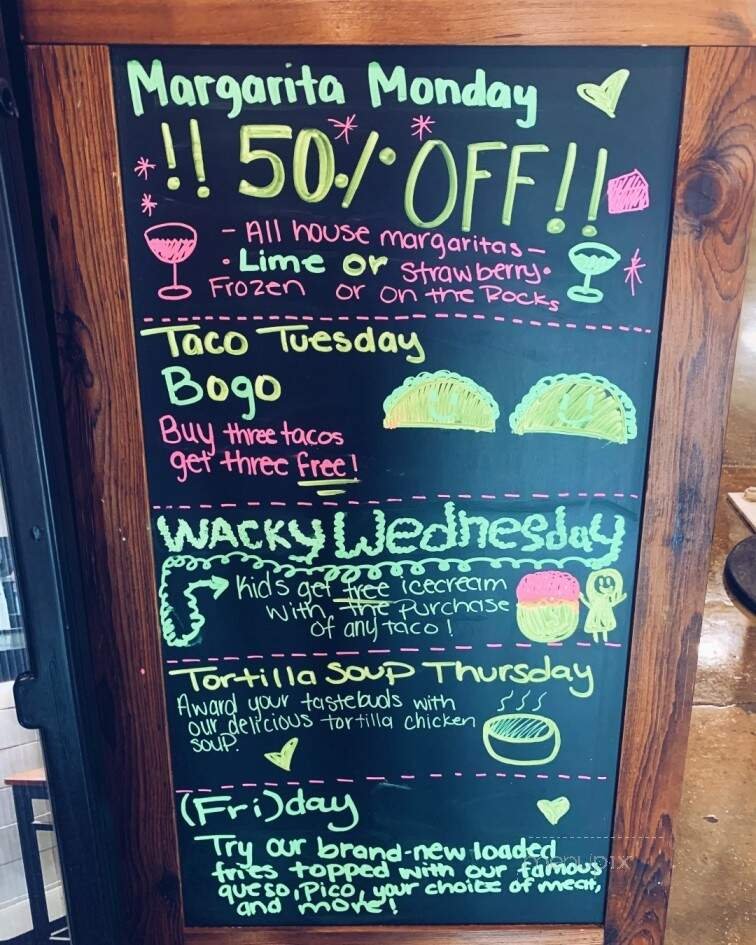 Margarita Monday
!! 50% OFF!!
- All house margaritas -
• Lime or Strawberry •
Frozen or on the Rocks
Taco Tuesday
Bogo
Buy three tacos
get three free!
WACKY Wednesday
Kid's get free icecream
with the purchase
of any taco!
Tortilla Soup Thursday
Award your tastebuds with
our delicious tortilla chicken
soup.
(Fri)day
Try our brand-new loaded
fries topped with our famous
queso, Pico, your choice of meat,
and more!
menupix